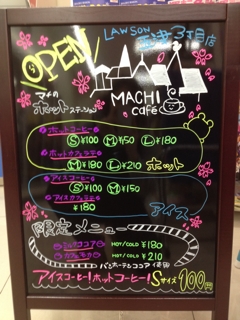 OPEN
LAWSON
3丁目店
マチの
ホットステーション
MACHI
café
ホットコーヒー
S ¥100 M ¥150 L ¥180
ホットカフェラテ
M ¥180 L ¥210 ホット
アイスコーヒー
S ¥100 M ¥150
アイスカフェラテ
¥180 アイス
限定メニュー
HOT/COLD ¥180
カフェモカ HOT/COLD ¥210
アイスコーヒー!ホットコーヒー!Sサイズ100円